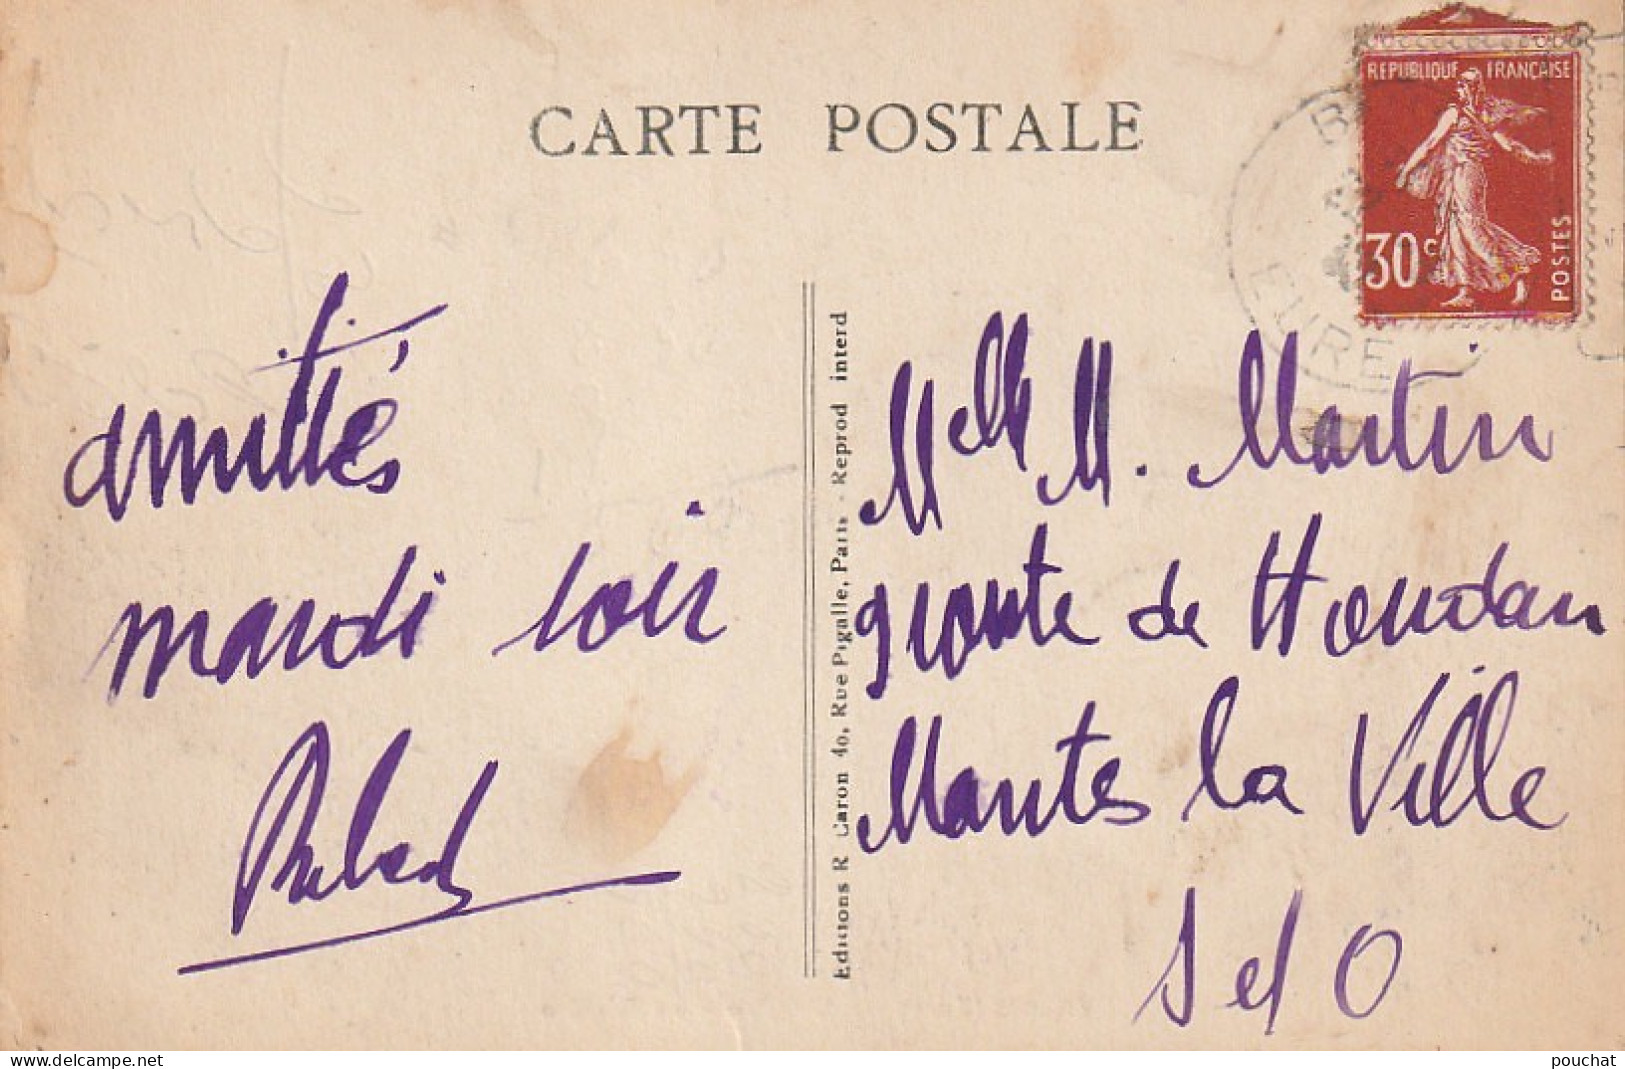 CARTE POSTALE
REPUBLIQUE FRANÇAISE
30c
POSTES
EURE
amitiés
mardi soir
Editions R Caron 40, Rue Pigalle, Paris - Reprod interd
Melle M. Martin
9 route de Houdan
Mantes la Ville
S et O
www.delcampe.net
pouchat